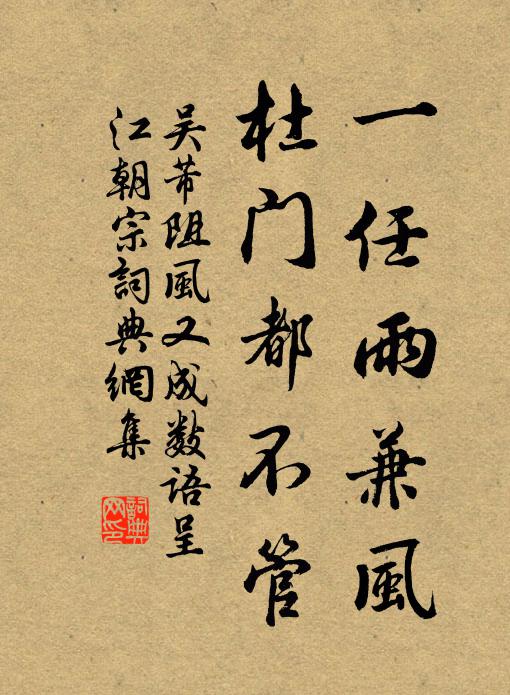 一任雨兼風
杜門都不管
吴芾阻風又成数语呈
江朝宗詞典網集
詞典
网印